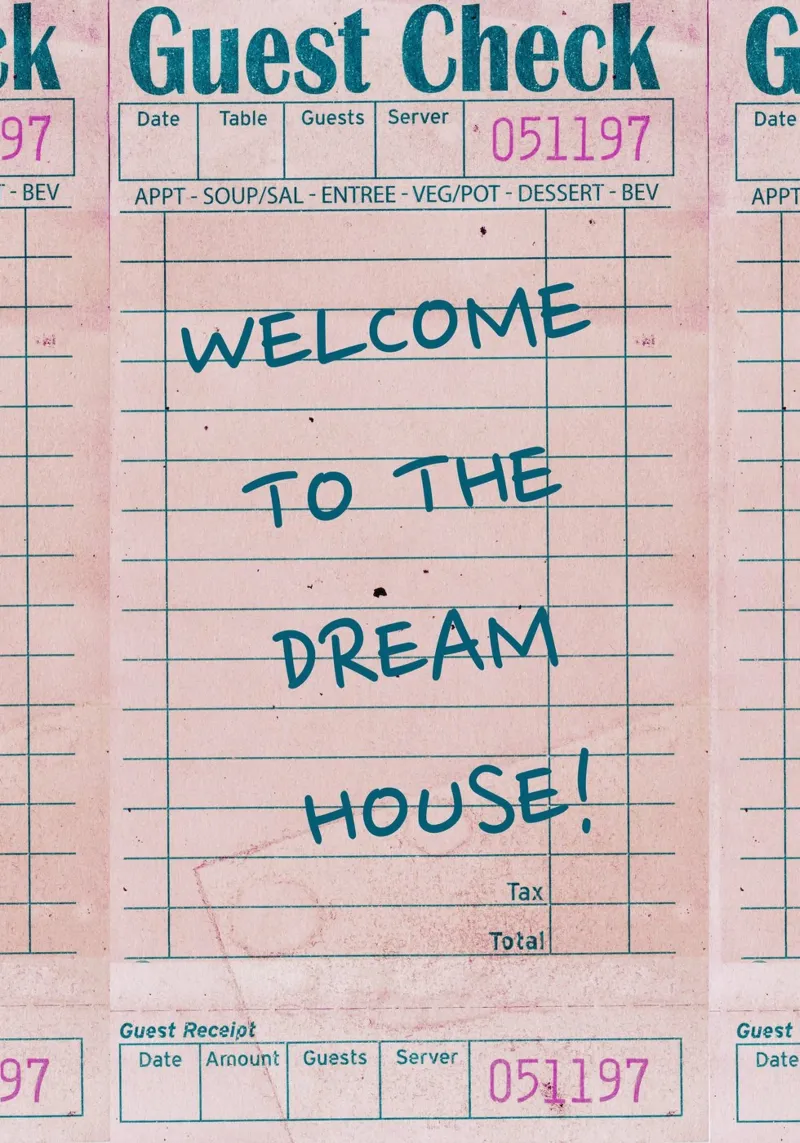 ck Guest Check G
97 Date Table Guests Server 051197 Date
T - BEV APPT - SOUP/SAL - ENTREE - VEG/POT - DESSERT - BEV APPT
WELCOME
TO THE
DREAM
HOUSE!
Tax
Total
Guest Receipt Guest
97 Date Amount Guests Server 051197 Date